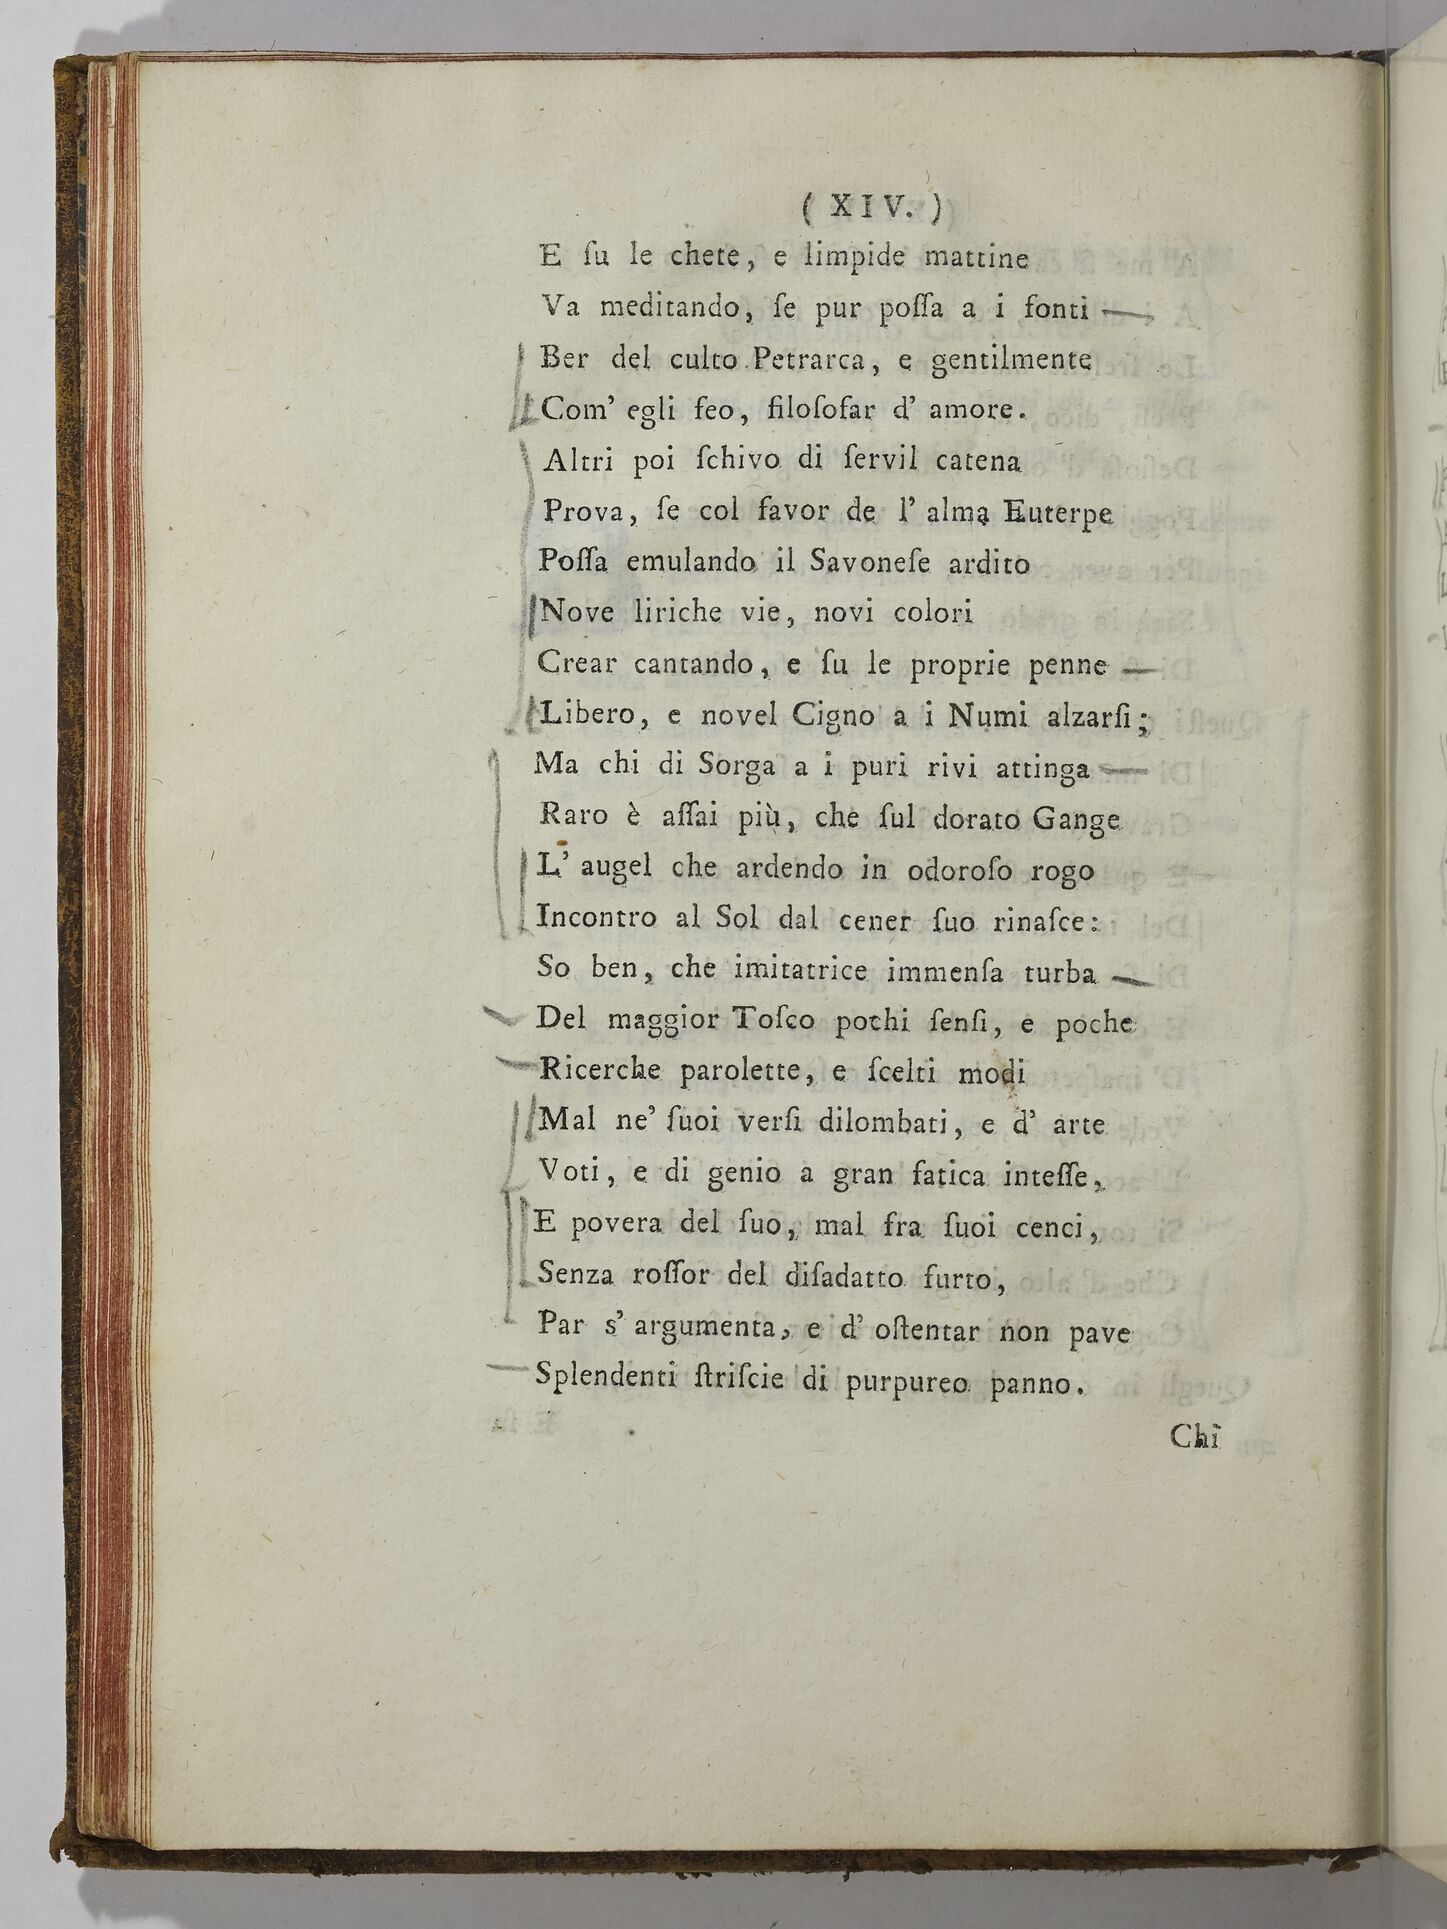 ( XIV. )
E ſu le chete, e limpide mattine
Va meditando, ſe pur poſſa a i fonti
Ber del culto Petrarca, e gentilmente
Com' egli feo, filoſofar d' amore.
Altri poi ſchivo di ſervil catena
Prova, ſe col favor de l' alma Euterpe
Poſſa emulando il Savoneſe ardito
Nove liriche vie, novi colori
Crear cantando, e ſu le proprie penne
Libero, e novel Cigno a i Numi alzarſi;
Ma chi di Sorga a i puri rivi attinga
Raro è aſſai più, che ſul dorato Gange
L' augel che ardendo in odoroſo rogo
Incontro al Sol dal cener ſuo rinaſce:
So ben, che imitatrice immenſa turba
Del maggior Toſco pochi ſenſi, e poche
Ricerche parolette, e ſcelti modi
Mal ne' ſuoi verſi dilombati, e d' arte
Voti, e di genio a gran fatica inteſſe,
E povera del ſuo, mal fra ſuoi cenci,
Senza roſſor del diſadatto furto,
Par s' argumenta, e d' oſtentar non pave
Splendenti ſtriſcie di purpureo panno.
Chi